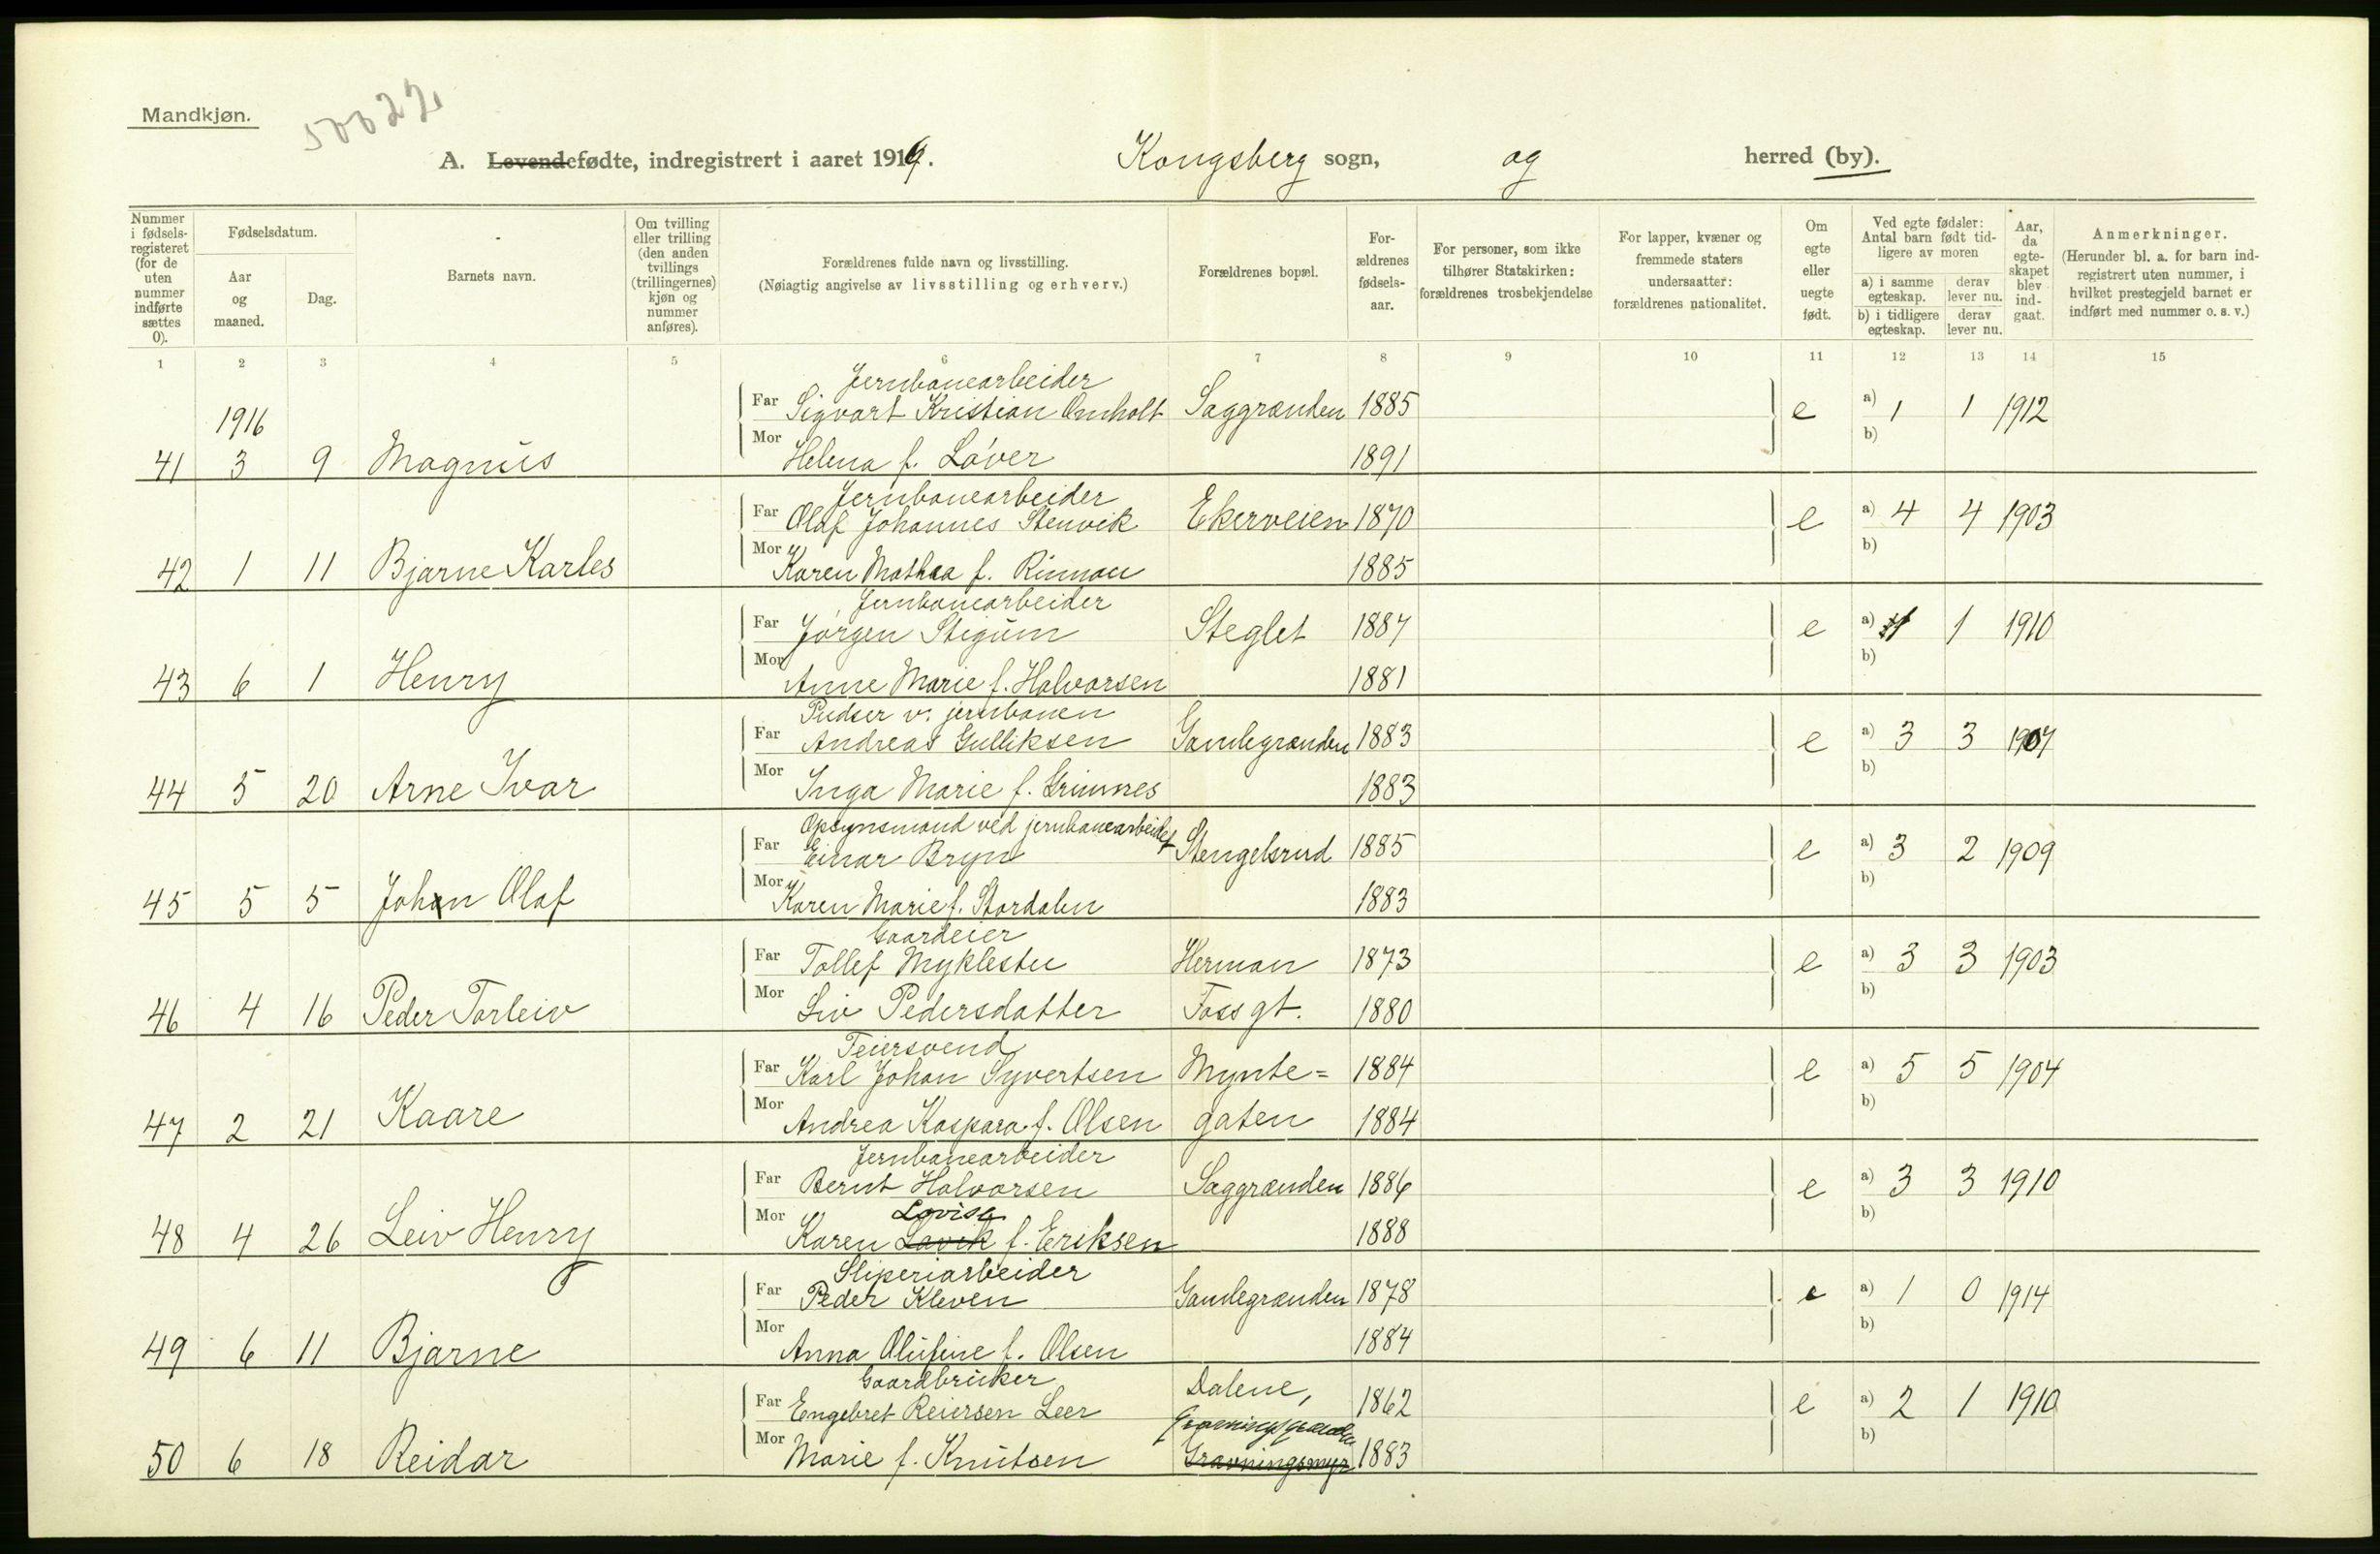 Mandkjøn.
50022
A. Levendefødte, indregistrert i aaret 1916. Kongsberg sogn, og herred (by).
Nummer i fødsels-registeret (for de uten nummer indførte sættes 0).
Fødselsdatum.
Aar og maaned.
Dag.
Barnets navn.
Om tvilling eller trilling (den anden tvillings (trillingernes) kjøn og nummer anføres).
Forældrenes fulde navn og livsstilling.
(Nøiagtig angivelse av livsstilling og erhverv.)
Forældrenes bopæl.
For-ældrenes fødsels-aar.
For personer, som ikke tilhører Statskirken: forældrenes trosbekjendelse
For lapper, kvæner og fremmede staters undersaatter: forældrenes nationalitet.
Om egte eller uegte født.
Ved egte fødsler: Antal barn født tid-ligere av moren
a) i samme egteskap.
b) i tidligere egteskap.
derav lever nu.
derav lever nu.
Aar, da egte-skapet blev ind-gaat.
Anmerkninger.
(Herunder bl. a. for barn ind-registrert uten nummer, i hvilket prestegjeld barnet er indført med nummer o. s. v.)
1 2 3 4 5 6 7 8 9 10 11 12 13 14 15
Jernbanearbeider
1916 Far Sigvart Kristian Omholt Saggrænden 1885 e a) 1 1 1912
41 3 9 Magnus Mor Helena f. Løver 1891 b)
Jernbanearbeider
Far Olaf Johannes Stenvik Ekerveien 1870 e a) 4 4 1903
42 1 11 Bjarne Karles Mor Karen Mathea f. Rinnan 1885 b)
Jernbanearbeider
Far Jørgen Stigum Steglet 1887 e a) 1 1910
43 6 1 Henry Mor Anne Marie f. Halvorsen 1881 b)
Pudser v. jernbanen
Far Andreas Gulliksen Gamlegrænden 1883 e a) 3 3 1907
44 5 20 Arne Ivar Mor Inga Marie f. Grimnes 1883 b)
Opsynsmand ved jernbanearbeidet
Far Einar Bryn Stengelsrud 1885 e a) 3 2 1909
45 5 5 Johan Olaf Mor Karen Marie f. Stordalen 1883 b)
Gaardeier
Far Tollef Myklestu Herman 1873 e a) 3 3 1903
46 4 16 Peder Torleiv Mor Liv Pedersdatter Foss gt. 1880 b)
Feiersvend
Far Karl Johan Syvertsen Mynte= 1884 e a) 5 5 1904
47 2 21 Kaare Mor Andrea Kaspara f. Olsen gaten 1884 b)
Jernbanearbeider
Far Bernt Halvorsen Saggrænden 1886 e a) 3 3 1910
Lovise
48 4 26 Leiv Henry Mor Karen Lavik f. Eriksen 1888 b)
Sliperiarbeider
Far Peder Kleven Gamlegrænden 1878 e a) 1 0 1914
49 6 11 Bjarne Mor Anna Olufine f. Olsen 1884 b)
Gaardbruker
Far Engebret Reiersen Leer Dalene, 1862 e a) 2 1 1910
Gravningsgrænden
50 6 18 Reidar Mor Marie f. Knutsen Gravningsmyr 1883 b)